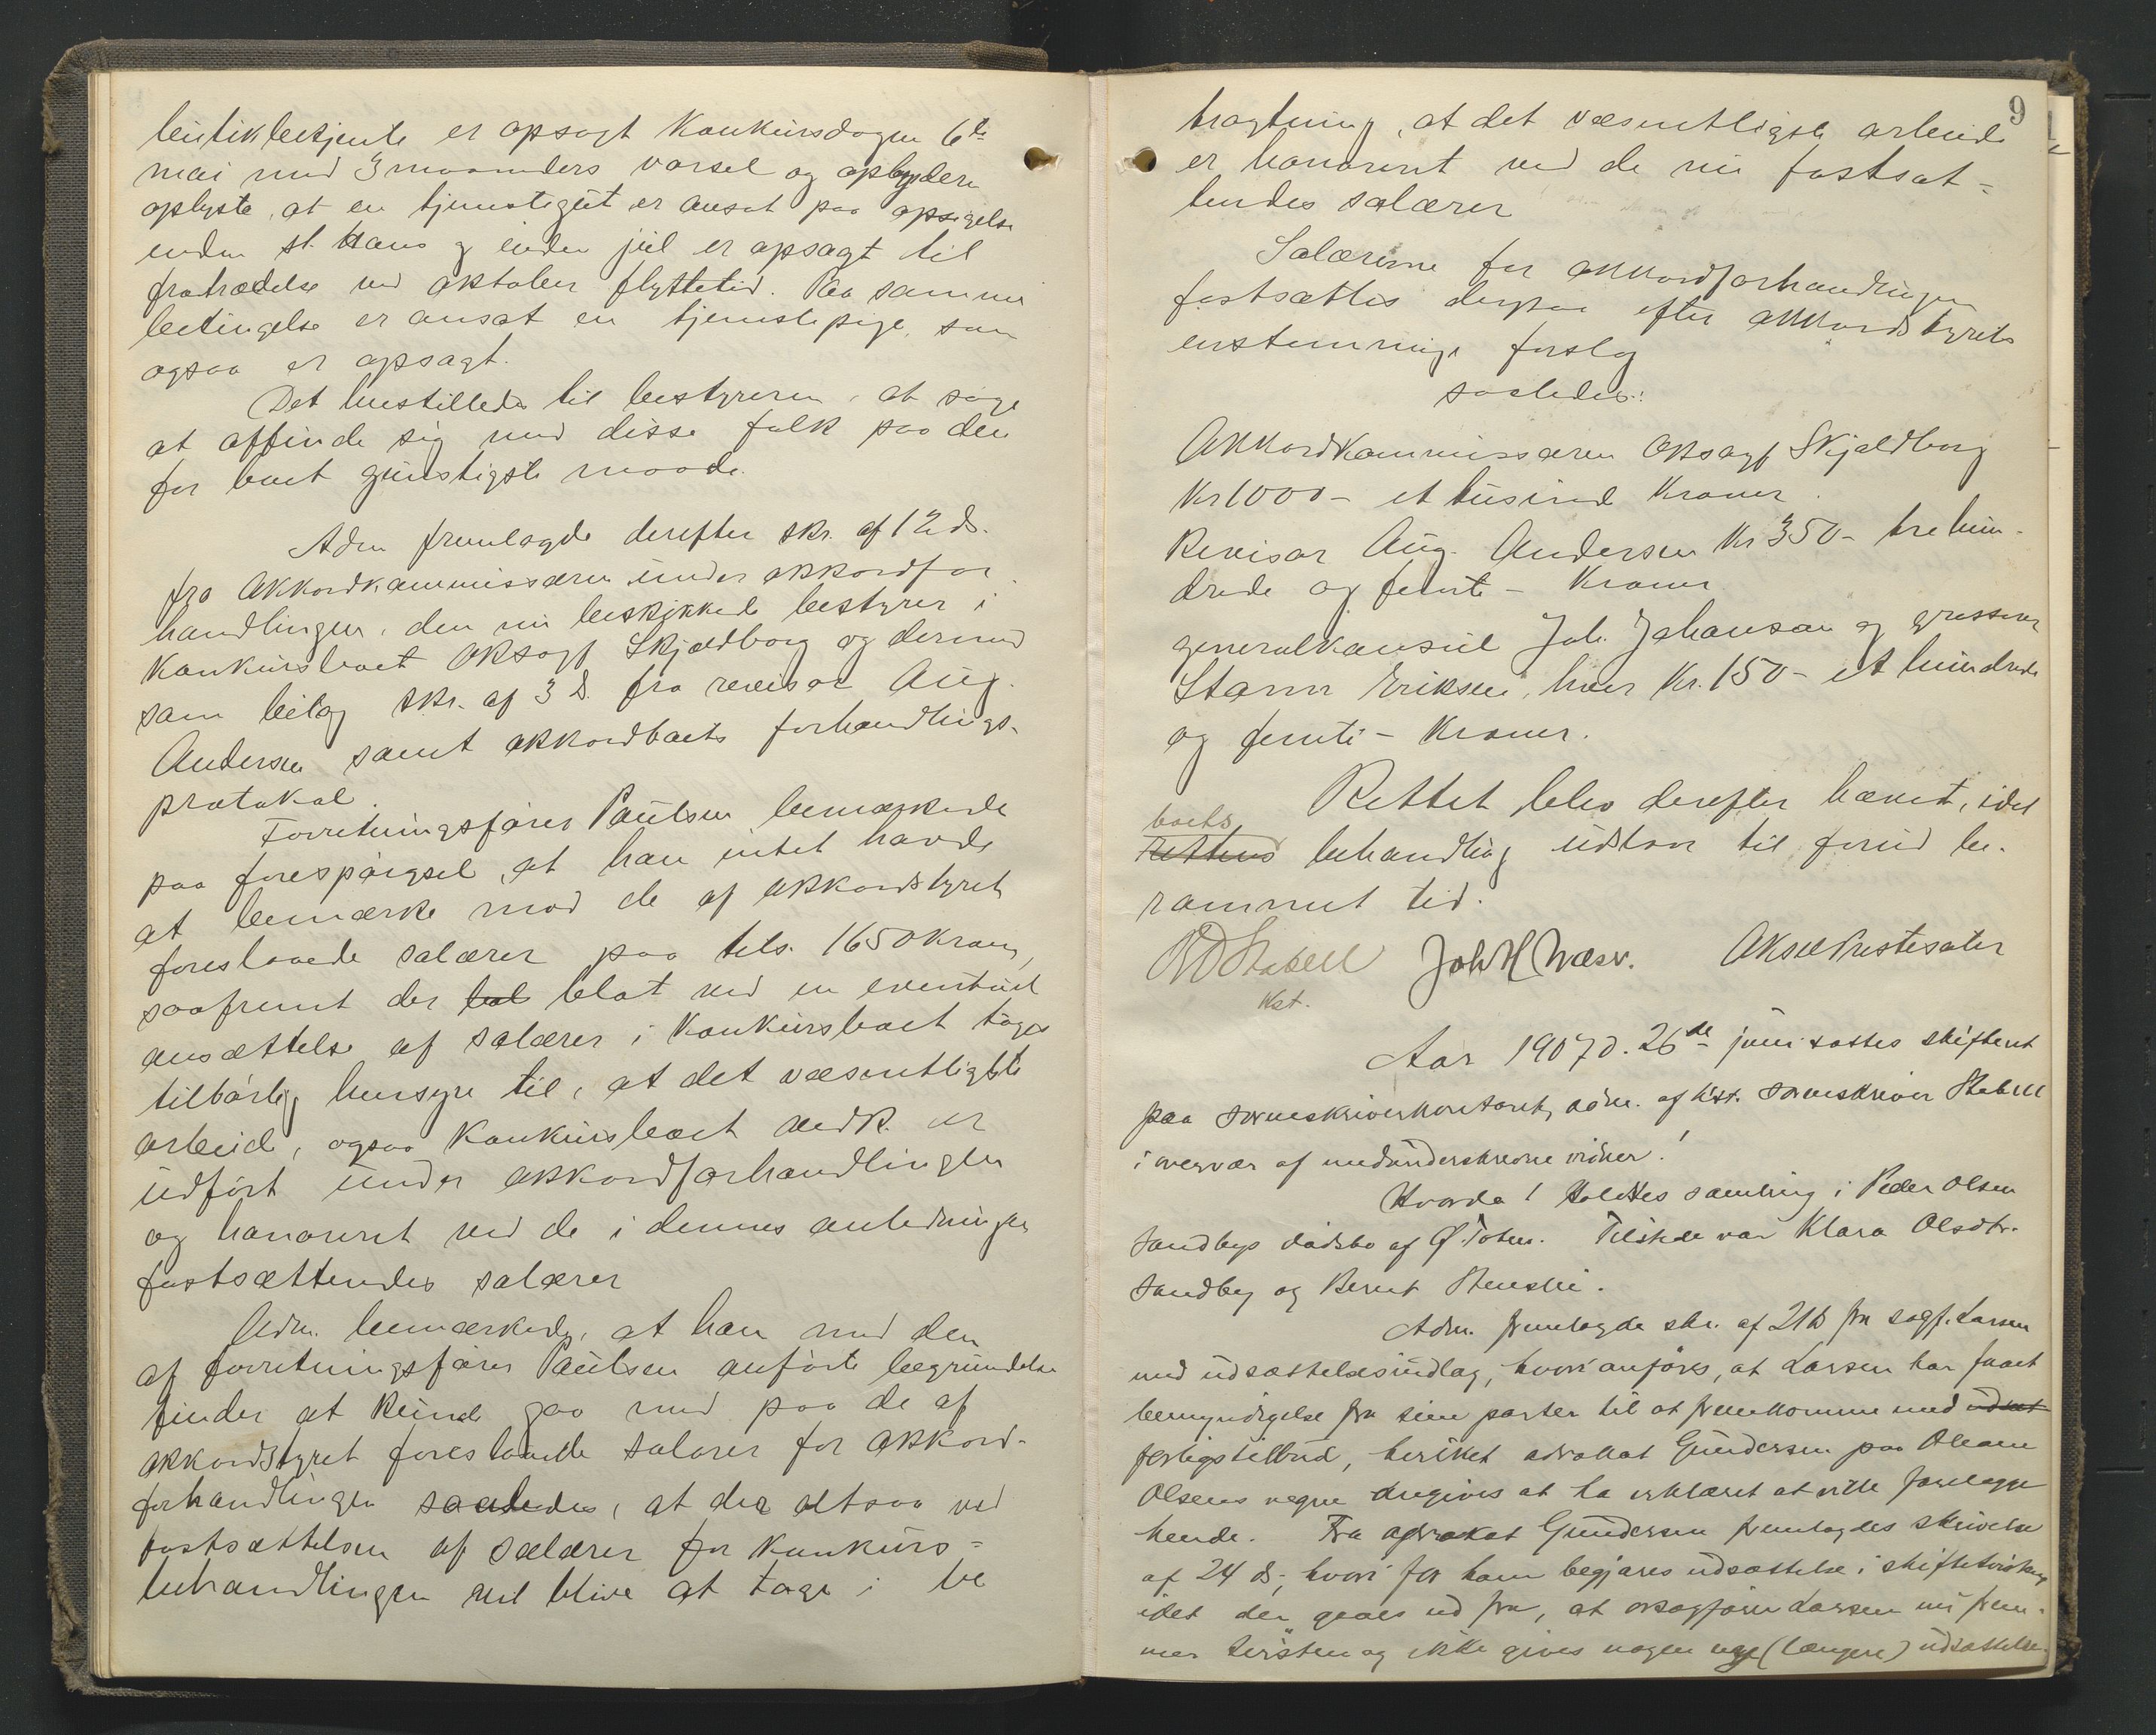 butikbetjente er opsagt konkursdagen 6te
mai med 3 maaneders varsel og
oplyste, at en tjenestegut er ansat paa opsigelse
inden st. Hans og inden jul er opsagt til
fratrædelse ved oktober flyttetid. Paa samme
betingelse er ansat en tjenestepige, som
ogsaa er opsagt.
Det henstilledes til bestyreren, at søge
at affinde sig med disse folk paa den
for boet gunstigste maade.
Adm fremlagde derefter skr. af 12 ds.
fra akkordkommissæren under akkordfor
handlingen, den nu beskikkede bestyrer i
konkursboet oksagf Skjaldborg og dermed
som bilag skr. af 3 ds. fra revisor Aug.
Andersen samt akkordboets forhandlings-
protokol.
Forretningsfører Paulsen bemærkede
paa forespørgsel, at han intet havde
at bemærke mod de af akkordstyret
foreslaaede salærer paa tils. 1650 kroner,
saafremt der bol blot ved en eventuel
ansættelse af salærer i konkursboet tages
tilbørlig hensyn til, at det væsentligste
arbeid, ogsaa konkursboet vedk. er
udført under akkordforhandlingen
og honoreret ved de i dennes anledning
fastsættendes salærer
Adm. bemærkede, at han med den
af forretningsfører Paulsen anførte begrundelse
finder at kunde gaa med paa de af
akkordstyret foreslaaede salærer for akkord-
forhandlingen saaledes, at der altsaa ved
fastsættelsen af salærer for konkurs=
behandlingen vil blive at tage i be
9
tragtning, at det væsentligste arbeide
er honoreret ved de nu fastsat=
tendes salærer
Salærerne for akkordforhandlingen
fastsættes derpaa efter akkordstyrets
enstemmige forslag
saaledes:
Akkordkommissæren oksagf Skjaldborg
Kr 1000- et tusind kroner.
Revisor Aug. Andersen Kr 350- trehun-
drede og femti - kroner
generalkonsul Joh. Johanson og grosserer
Stamm Eriksen, hver Kr. 150- et hundrede
og femti - kroner.
Rettet blev derefter hævet, idet
boets
rettens behandling udstaar til forud be-
rammet tid.
Stabell Joh H Næsv. Aksel
Kst.
Aar 1907 d. 26de juni sattes skifteret
paa sorenskriverkontoret, adm. af kst. sorenskriver Stabell
i overvær af medunderskrevne vidner!
Hvorda! Holdtes samling i Peder Olsen
Sandbys dødsbo af Ø. Toten. Tilstede var Klara Olsdtr.
Sandby og Bernt Stenslie.
Adm. fremlagde skr. af 21 ds fra sagf. Larsen
med udsættelsesindlag, hvori anføres, at Larsen har faaet
bemyndigelse fra sine parter til at fremkomme med udsat
forligstilbud, hvilket advokat Gundersen paa Oleane
Olsens vegne angives at ha erklæret at ville forelægge
hende. Fra advokat Gundersen fremlagdes skrivelse
af 24 ds, hvori for ham begjæres udsættelse i skiftetvisten
idet der gaaes ud fra, at orsagfører Larsen nu frem-
mer tvisten og ikke gives nogen (længere) udsættelse.